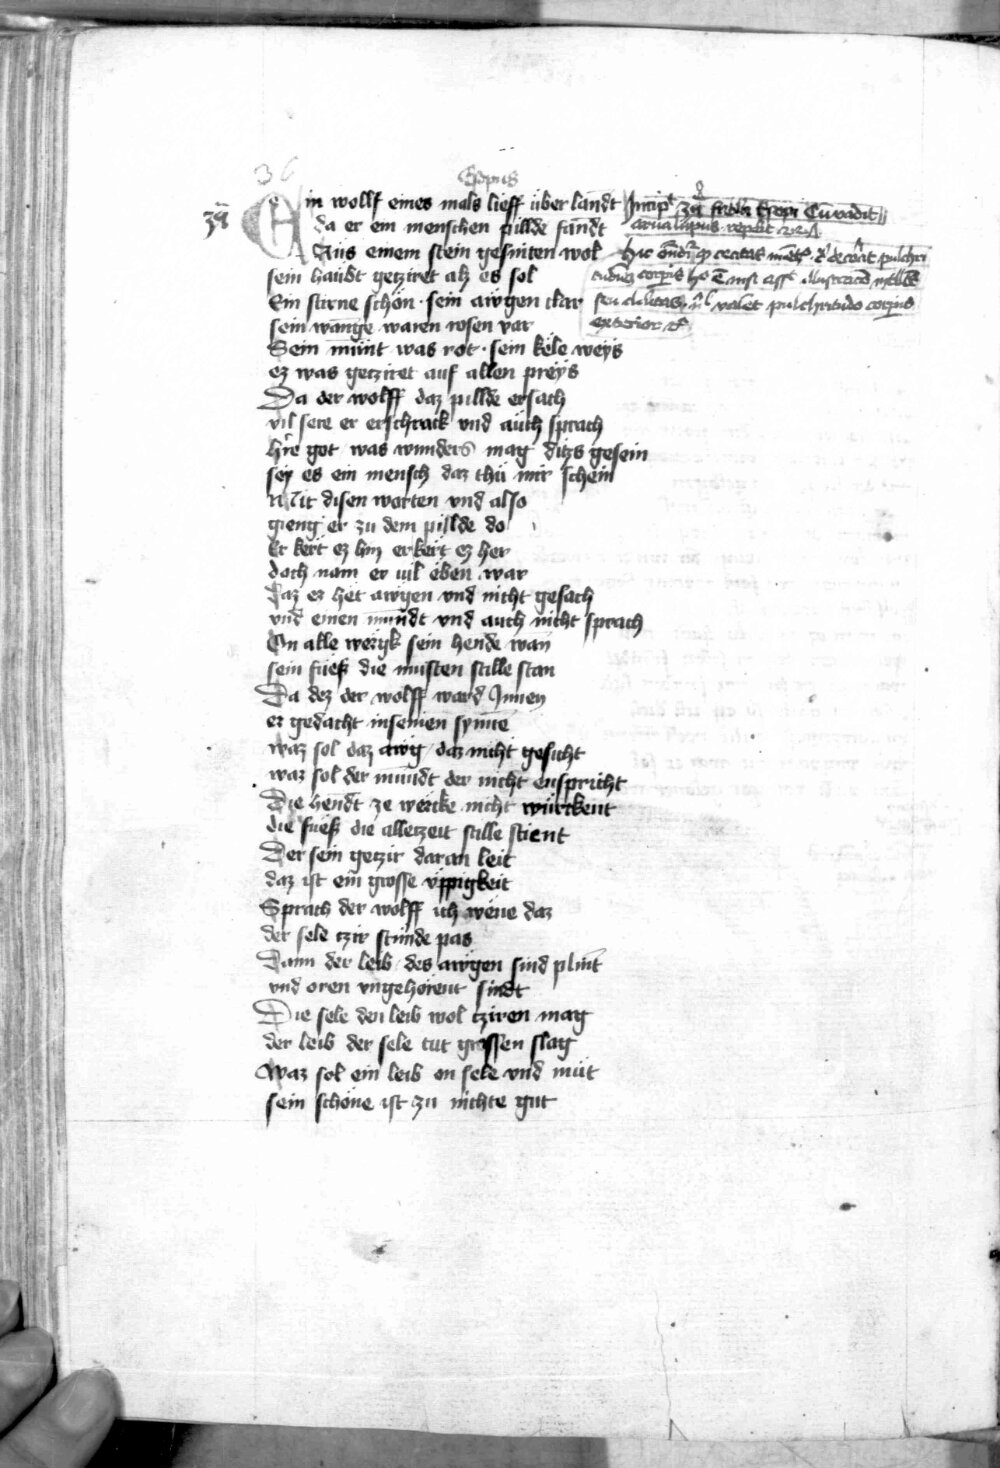 36
Esopus
Ein wollf eines mals lieff über landt
da er ein menschen pillde fandt
Aüs einem stein gesniten wol
sein haübt getziret alz es sol
Ein stirne schön · sein awgen clar
sein wange waren rosen var
Sein münt was rot · sein kele weys
ez was getziret auf allen preys
Da der wolff daz pillde ersach
vil sere er erschrack vnd aüch sprach
h're got / was wunders mag ditzs gesein
sey es ein mensch daz thü mir schein
Mit disen worten vnd also
gieng er zu dem pillde do
Er kert ez hin er kert ez her
doch nam er vil eben war
Daz ez het awgen vnd nicht gesach
vnd einen mundt vnd auch nicht sprach
On alle werigk sein hende wan
sein fueß die musten stille stan
Da dez der wolff ward Innen
er gedacht in seinen synne
waz sol daz awg / daz nicht gesicht
waz sol der mundt der nicht enspricht
Die hendt ze wercke nicht würckent
die fueß die alletzeit stille stient
Der sein getzir daran leit
daz ist ein grosse vppigkeit
Sprach der wolff ich wene daz
der sele tzir stünde pas
Dann der leib / des awgen sind plint
vnd oren vngehorent sindt
Die sele den leib wol tziren mag
der leib der sele tut grossen slag
Waz sol ein leib on sele vnd müt
sein schöne ist zu nichte gut
arua lupus rep'it
pulchri
valet pulchritudo corporis
exterior